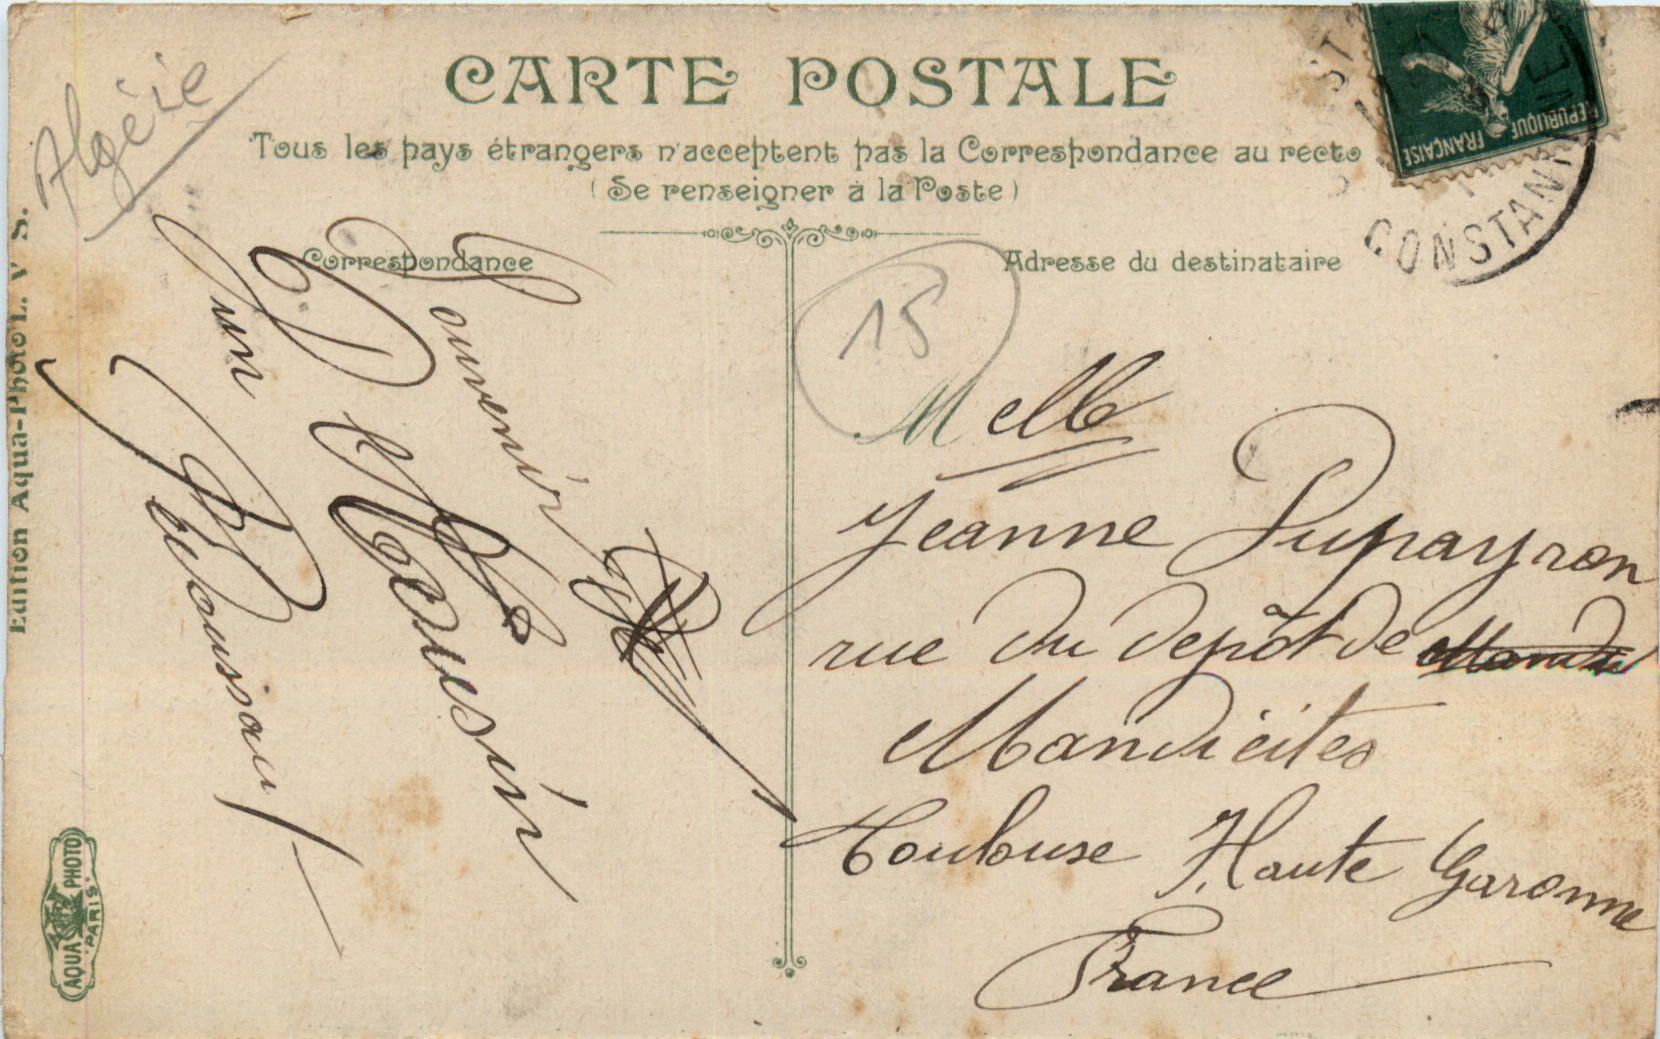 CARTE POSTALE
Tous les pays étrangers n'acceptent pas la Correspondance au recto
(Se renseigner à la Poste)
Correspondance
Adresse du destinataire
Algérie
15
Souvenir
D'un
Melle
Jeanne Dupayron
rue du depôt de
Mandicites
Toulouse Haute Garonne
France
REPUBLIQUE FRANÇAISE
CONSTANTINE
Edition Aqua-Photo L. V S.
AQUA PHOTO
PARIS